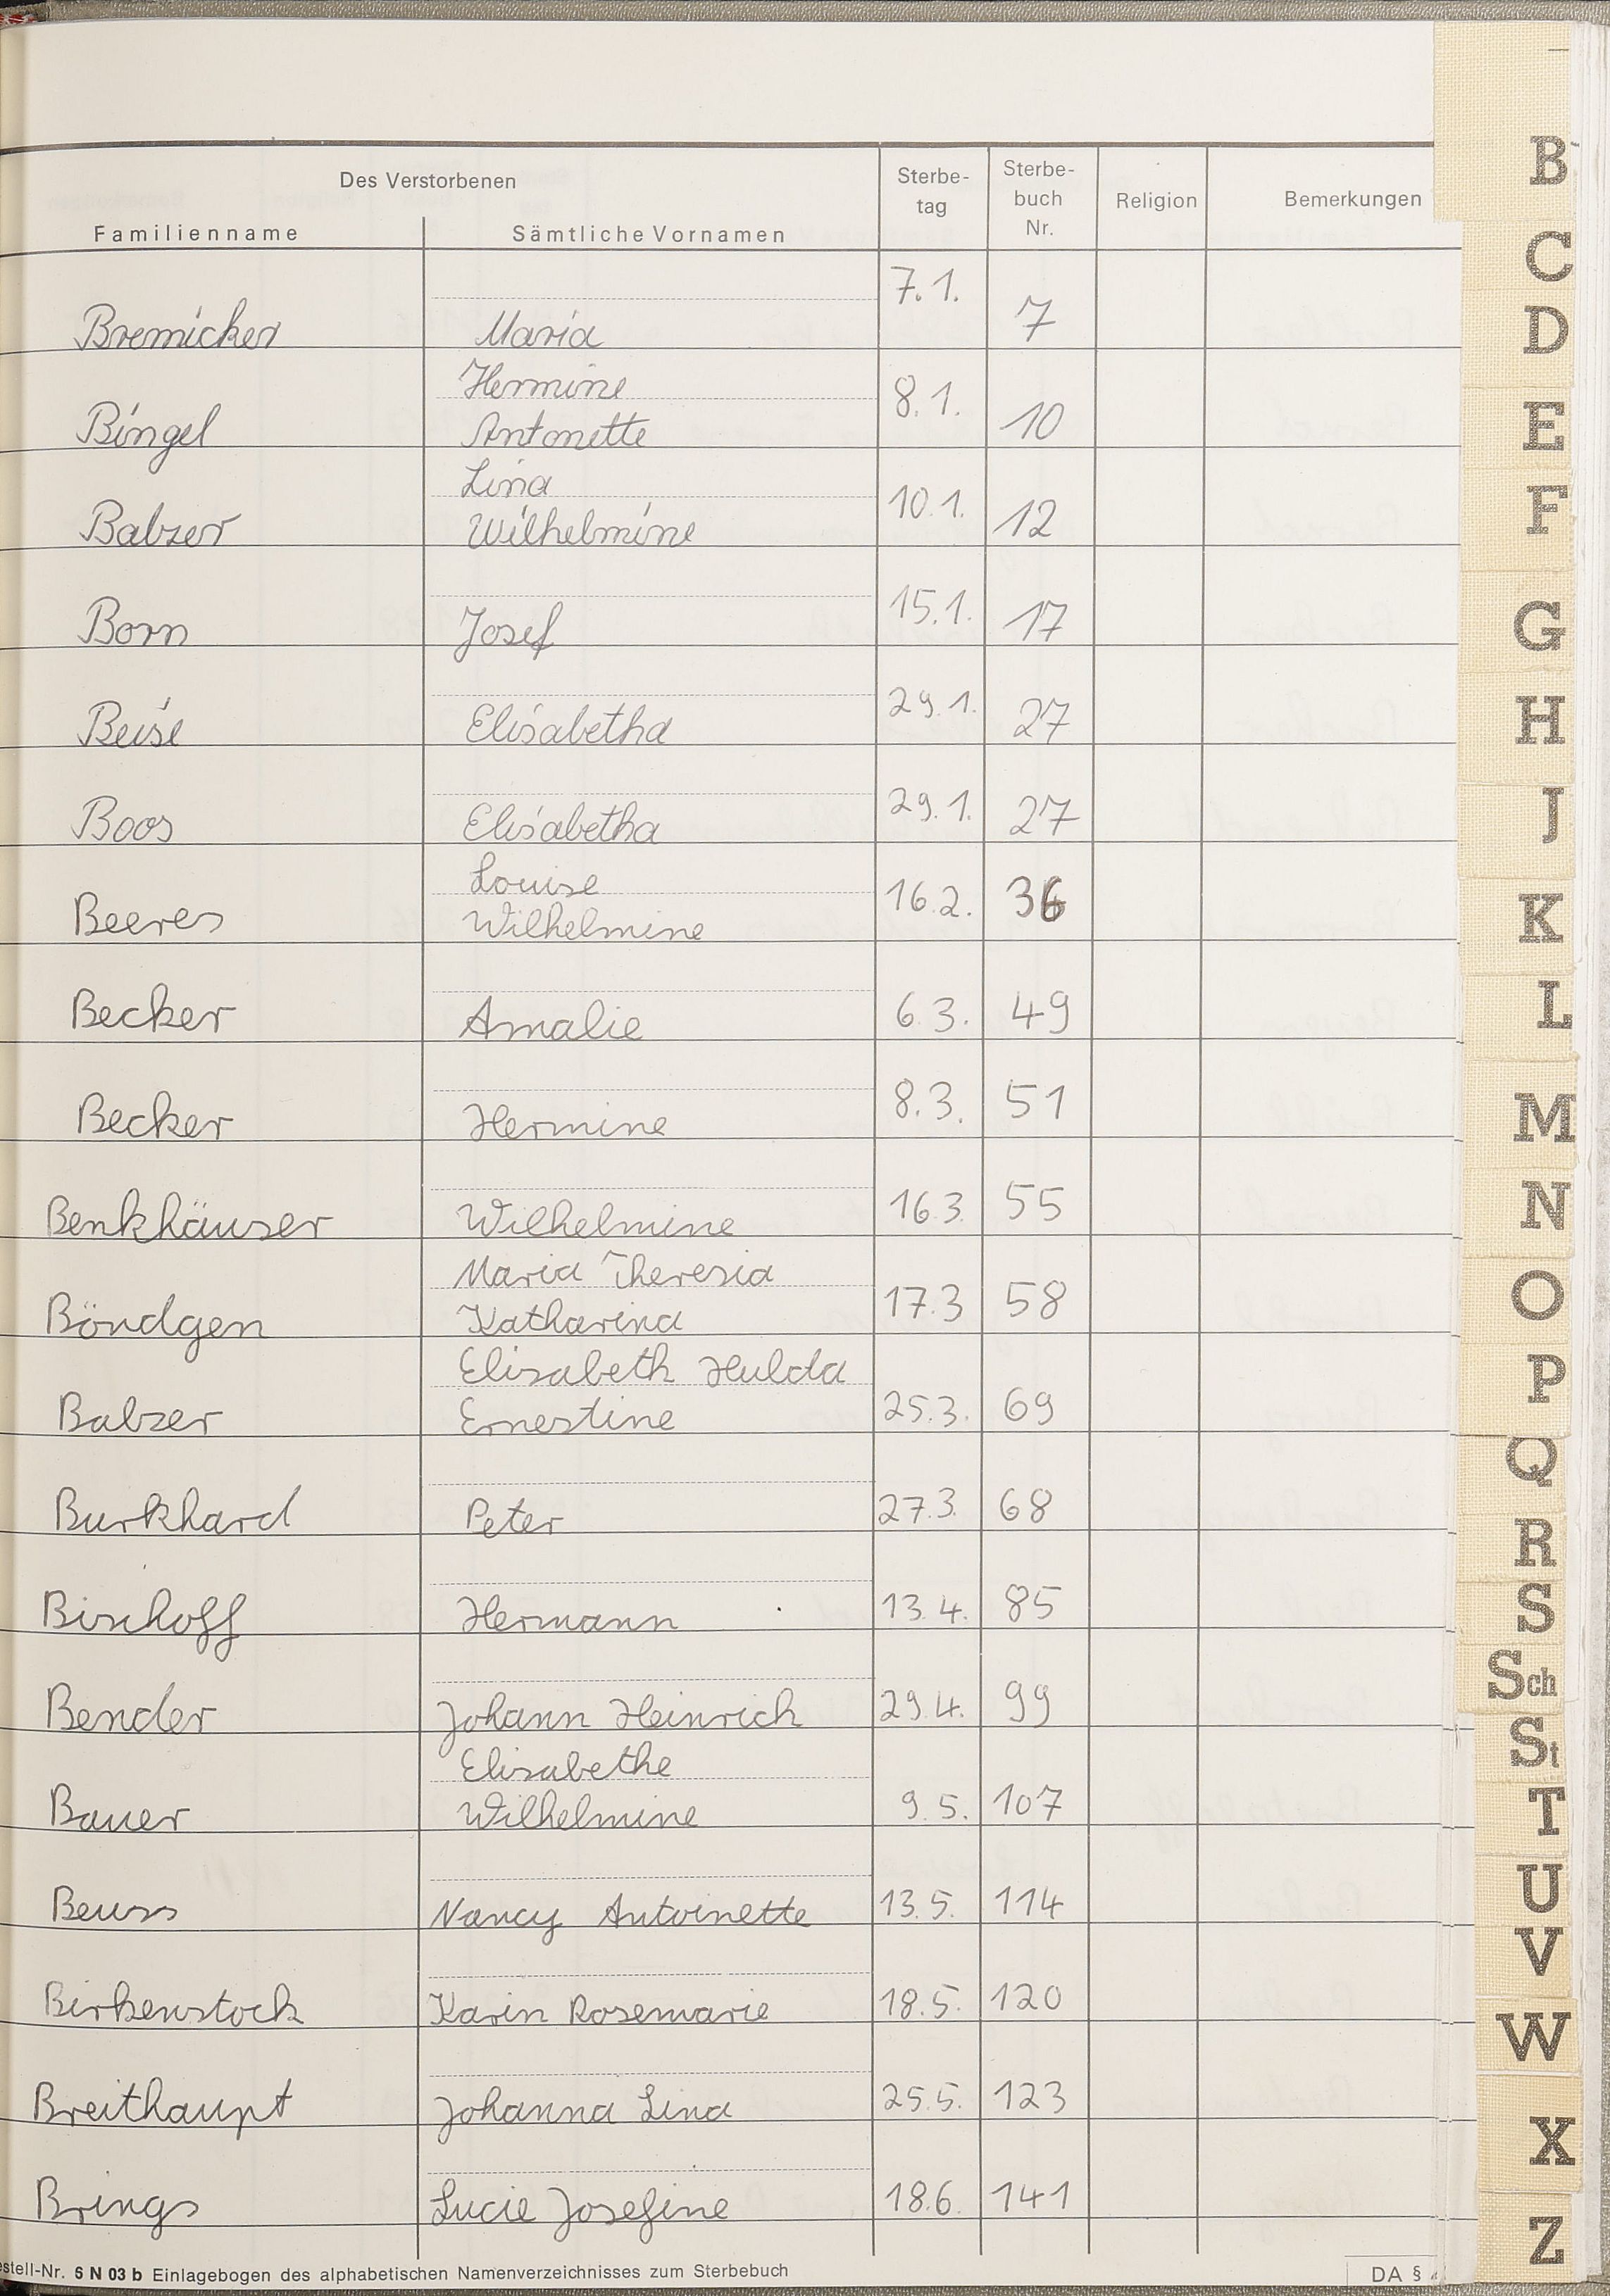 Des Verstorbenen
Familienname Sämtliche Vornamen Sterbe-tag Sterbe-buch Nr. Religion Bemerkungen
7.1.
Bremicker Maria 7
Hermine
Bingel Antonette 8.1. 10
Lina
Balzer Wilhelmine 10.1. 12
Born Josef 15.1. 17
Beise Elisabetha 29.1. 27
Boos Elisabetha 29.1. 27
Louise
Beeres Wilhelmine 16.2. 36
Becker Amalie 6.3. 49
Becker Hermine 8.3. 51
Benkhäuser Wilhelmine 16.3. 55
Maria Theresia
Böndgen Katharina 17.3 58
Elisabeth Hulda
Balzer Ernestine 25.3. 69
Burkhard Peter 27.3. 68
Bischoff Hermann 13.4. 85
Bender Johann Heinrich 29.4. 99
Elisabethe
Bauer Wilhelmine 9.5. 107
Beuss Nancy Antoinette 13.5. 114
Birkenstock Karin Rosemarie 18.5. 120
Breithaupt Johanna Lina 25.5. 123
Brings Lucie Josefine 18.6. 141
estell-Nr. 6 N 03 b Einlagebogen des alphabetischen Namenverzeichnisses zum Sterbebuch
DA §
B
C
D
E
F
G
H
J
K
L
M
N
O
P
Q
R
S
Sch
St
T
U
V
W
X
Z